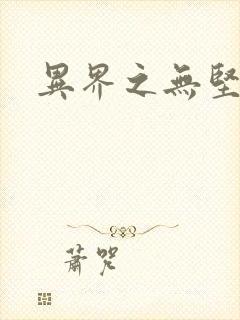 異界之無堅
蕭咒